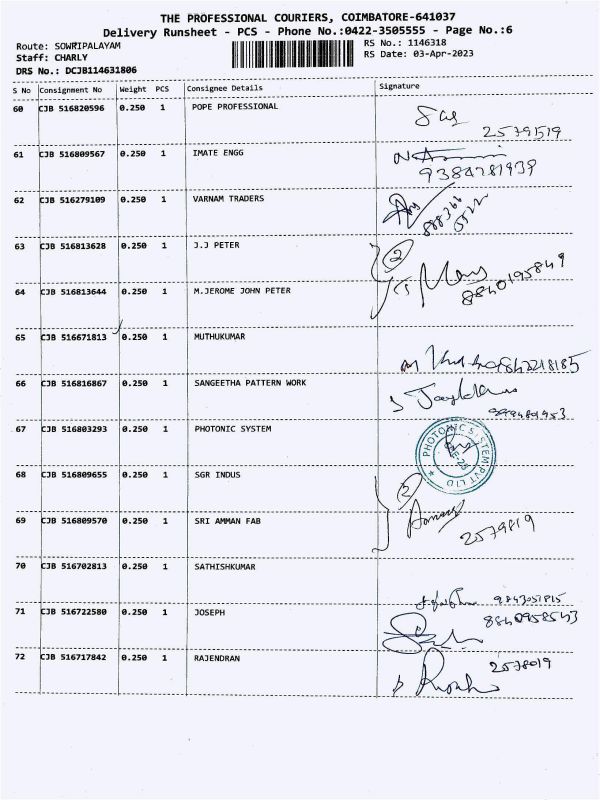 THE PROFESSIONAL COURIERS, COIMBATORE-641037
Delivery Runsheet - PCS - Phone No.:0422-3505555 - Page No.:6
Route: SOWRIPALAYAM
Staff: CHARLY
DRS No.: DCJB114631806
RS No.: 1146318
RS Date: 03-Apr-2023
S No Consignment No Weight PCS Consignee Details Signature
60 CJB 516820596 0.250 1 POPE PROFESSIONAL
2579519
61 CJB 516809567 0.250 1 IMATE ENGG
9384781939
62 CJB 516279109 0.250 1 VARNAM TRADERS
63 CJB 516813628 0.250 1 J.J PETER
2
8840195849
64 CJB 516813644 0.250 1 M.JEROME JOHN PETER
65 CJB 516671813 0.250 1 MUTHUKUMAR
9842218185
66 CJB 516816867 0.250 1 SANGEETHA PATTERN WORK
67 CJB 516803293 0.250 1 PHOTONIC SYSTEM
PHOTONIC SYSTEM PVT LTD
68 CJB 516809655 0.250 1 SGR INDUS
2
69 CJB 516809570 0.250 1 SRI AMMAN FAB
2579819
70 CJB 516702813 0.250 1 SATHISHKUMAR
9843051815
71 CJB 516722580 0.250 1 JOSEPH
8840958543
72 CJB 516717842 0.250 1 RAJENDRAN
2578019